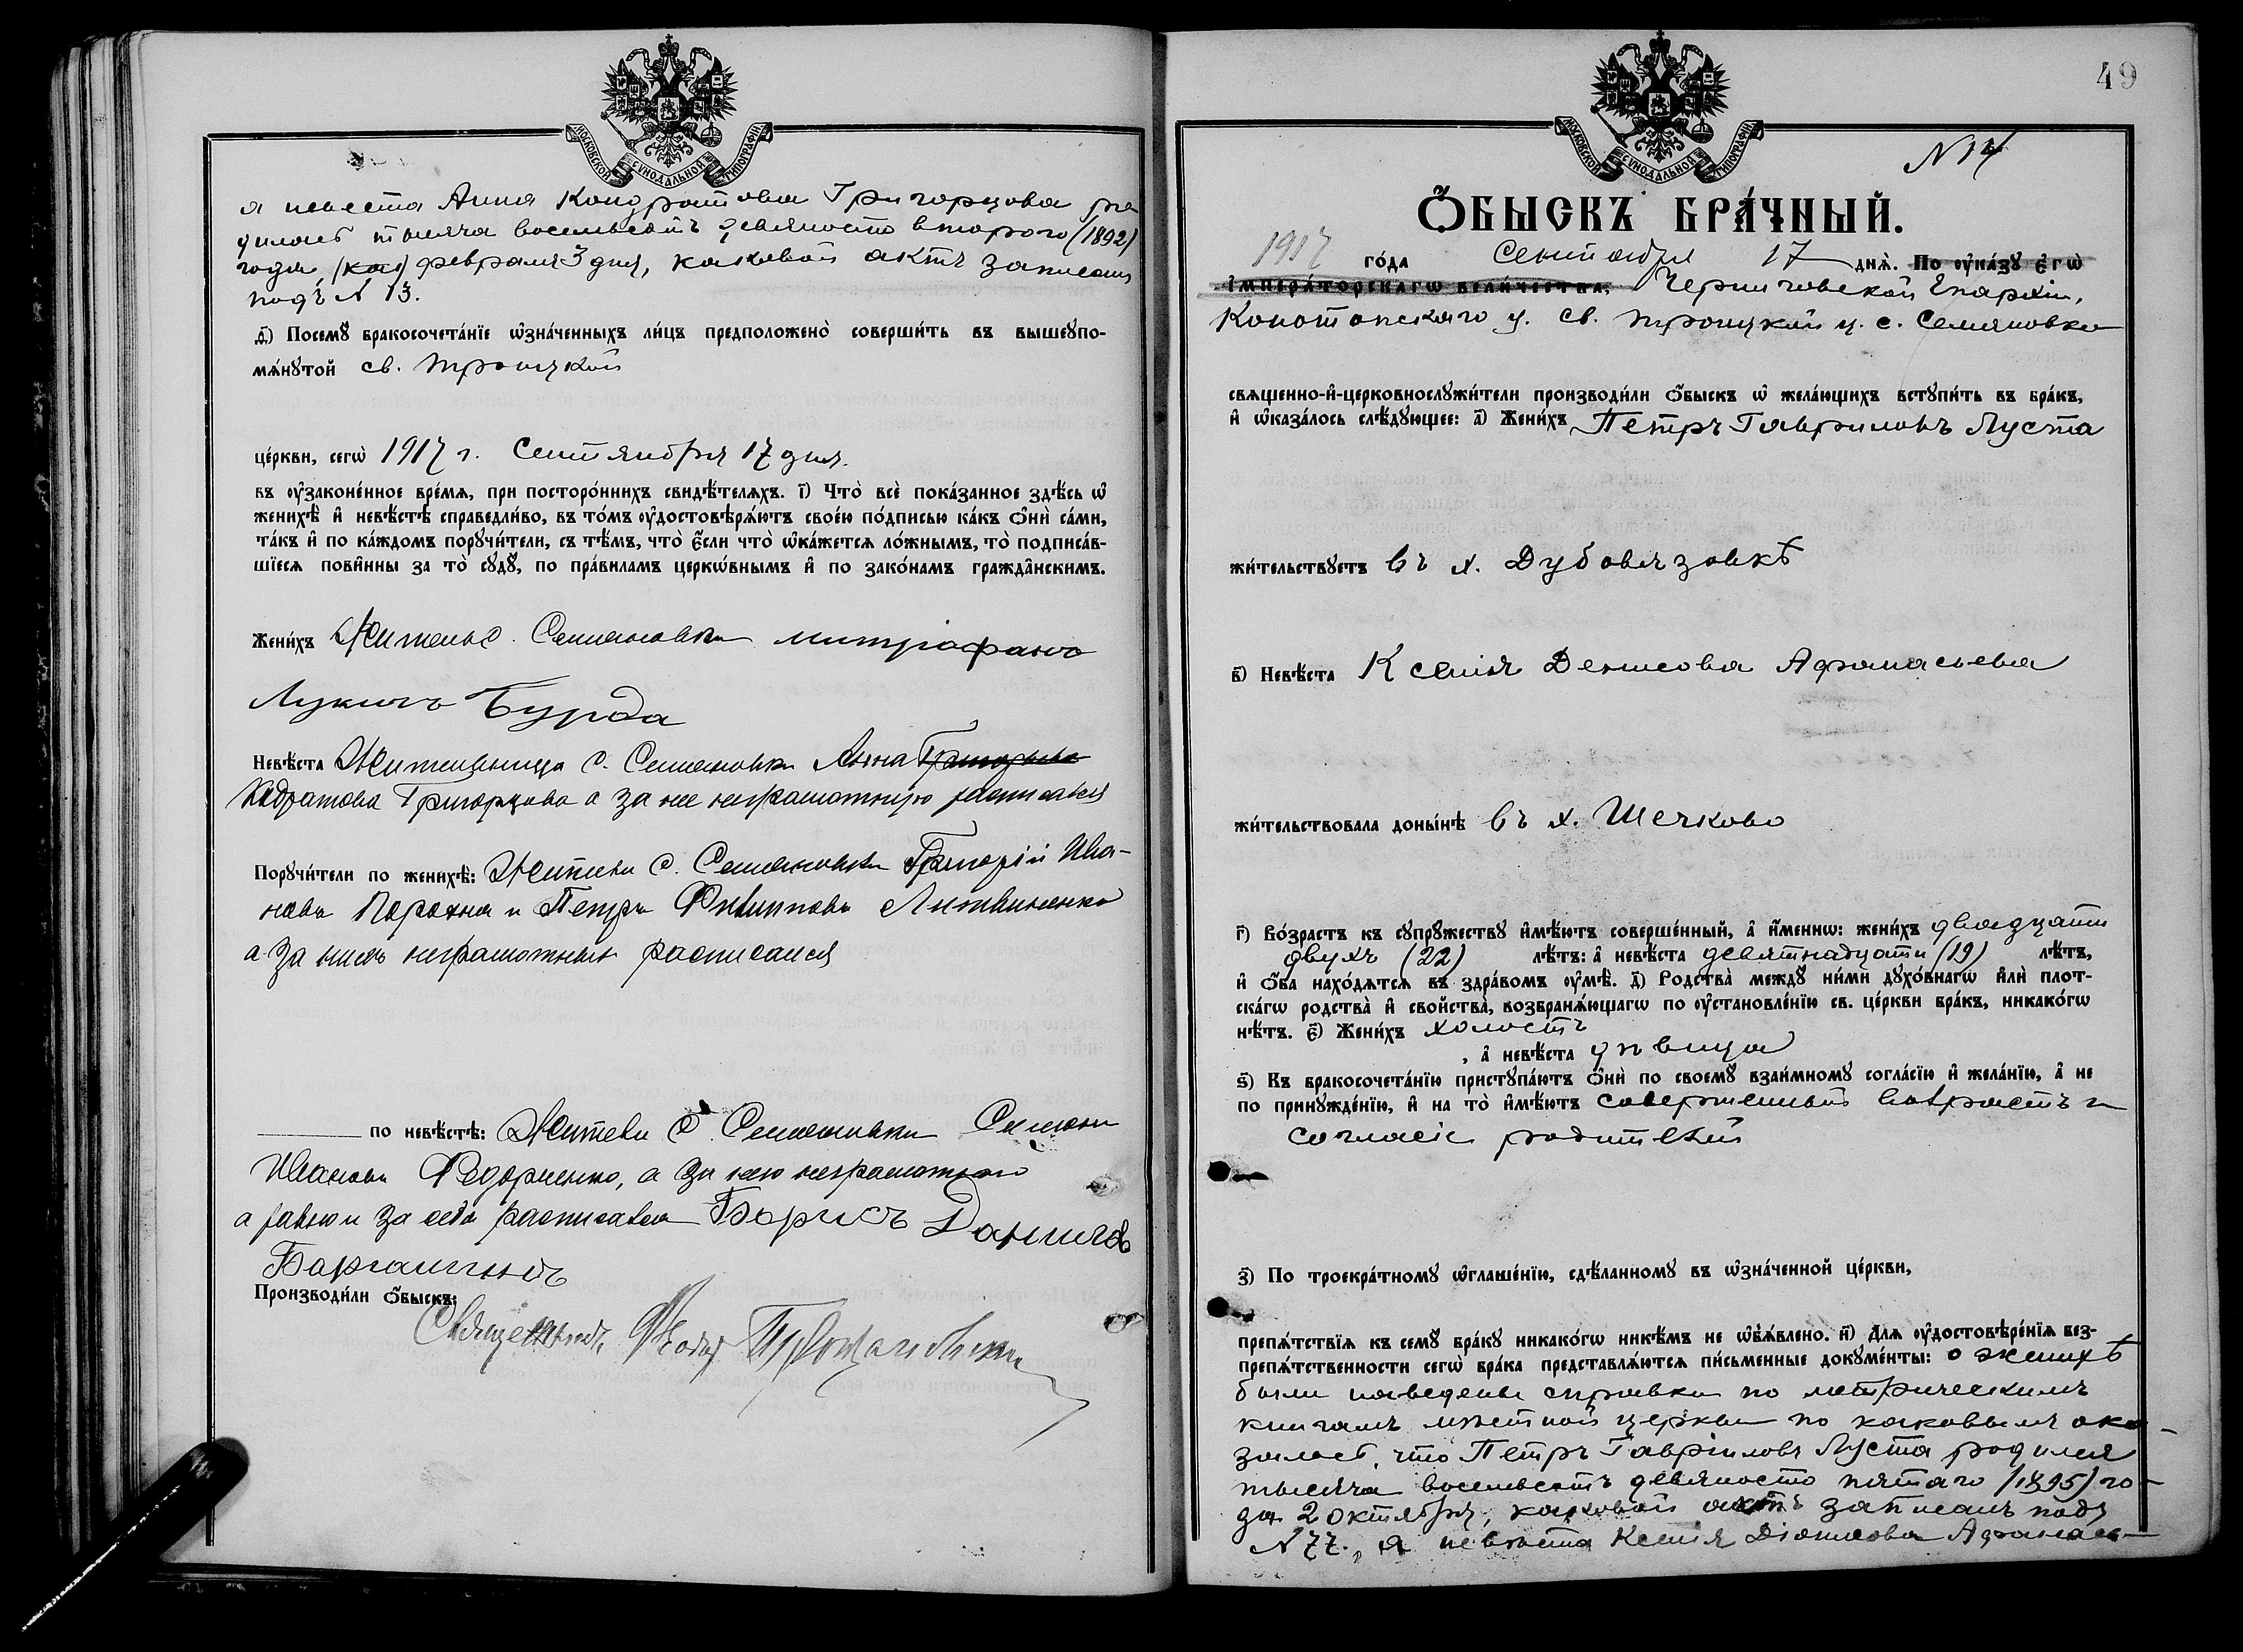 МОСКОВСКОЙ СѴНОДАЛЬНОЙ ТИПОГРАФІИ
а невеста Анна Кондратова Григорцова ро
дилась тысяча восемьсотъ девяносто второго (1892)
года, февраля 3 дня, каковой актъ записанъ
подъ N 13.
д҃) Посемꙋ̀ бракосочета́нїе ѡ҆зна́ченныхъ ли́цъ предположено̀ соверши́ть въ вышеꙋпо-
мѧ́нꙋтой св. Троицкой
це́ркви, сегѡ̀ 1917 г. Сентября 17 дня.
въ ᲂу҆законе́нное вре́мѧ, при посторо́ннихъ свидѣ́телѧхъ. і҃) Что̀ всѐ пока́занное здѣ́сь ѡ҆
женихѣ̀ и҆ невѣ́стѣ справедли́во, въ то́мъ ᲂу҆достовѣрѧ́ютъ свое́ю по́дписью ка́къ ѻ҆нѝ са́ми,
та́къ и҆ по ка́ждомъ порꙋчи́тели, съ тѣ́мъ, что̀ є҆́сли что̀ ѡ҆ка́жетсѧ ло́жнымъ, то̀ подписа́в-
шїесѧ пови́нны за то̀ сꙋдꙋ̀, по пра́виламъ церко́внымъ и҆ по зако́намъ гражда́нскимъ.
Жени́хъ Житель с. Семяновки Митрофанъ
Лукичъ Бурда
Невѣ́ста Жительница с. Семяновки Анна
Кодратова Григорцова а за нее неграмотную расписался
Порꙋчи́тели по женихѣ̀: Жители с. Семяновки Григорій Ива-
новъ Порохня и Петръ Филипповъ Литвиненко
а за нихъ неграмотныхъ расписался
по невѣ́стѣ: Жители с. Семяновки Симонъ
Ивановъ Федорченко, а за него неграмотного
а равно и за себя расписался Борисъ Данилов
Производи́ли ѻ҆́быскъ:
Священникъ Ѳеодоръ
49
МОСКОВСКОЙ СѴНОДАЛЬНОЙ ТИПОГРАФІИ
N 14
Ѻ҆БЫСКЪ БРА́ЧНЫЙ.
1917 го́да Сентября 17 днѧ̀. По ᲂу҆ка́зꙋ є҆гѡ̀
і҆мпера́торскагѡ вели́чества, Черниговской Епархіи,
Конотопскаго у. св. Троицкой ц. с. Семяновки
свѧще́нно-и҆-церковнослꙋжи́тели производи́ли ѻ҆́быскъ ѡ҆ жела́ющихъ встꙋпи́ть въ бра́къ,
и҆ ѡ҆каза́лось слѣ́дꙋющее: а҃) Жени́хъ Петръ Гавриловъ Луста
жи́тельствꙋетъ въ х. Дубовязовкѣ
в҃) Невѣ́ста Ксенія Денисова Афанасьева
жи́тельствовала доны́нѣ въ х. Шечково
г҃) Во́зрастъ къ сꙋпрꙋ́жествꙋ и҆мѣ́ютъ соверше́нный, а҆ и҆́меннѡ: жени́хъ двадцати
двухъ (22) лѣ́тъ: а҆ невѣ́ста девятнадцати (19) лѣ́тъ,
и҆ ѻ҆́ба нахо́дѧтсѧ въ здра́вомъ ᲂу҆мѣ̀. д҃) Родства̀ междꙋ̀ ни́ми дꙋхо́внагѡ и҆лѝ плот-
ска́гѡ родства̀ и҆ сво́йства, возбранѧ́ющагѡ по ᲂу҆становле́нїю св. це́ркви бра́къ, никако́гѡ
нѣ́тъ. є҃) Жени́хъ холостъ
, а҆ невѣ́ста дѣвица
ѕ҃) Къ бракосочета́нїю пристꙋпа́ютъ ѻ҆нѝ по своемꙋ̀ взаи́мномꙋ согла́сїю и҆ жела́нїю, а҆ не
по принꙋжде́нїю, и҆ на то̀ и҆мѣ́ютъ совершенный возрастъ и
согласіе родителей
з҃) По троекра́тномꙋ ѡ҆глаше́нїю, сдѣ́ланномꙋ въ ѡ҆зна́ченной це́ркви,
препѧ́тствїѧ къ семꙋ̀ бра́кꙋ никако́гѡ никѣ́мъ не ѡ҆б̾ѧ́влено. и҃) Длѧ ᲂу҆достовѣре́нїѧ без-
препѧ́тственности сегѡ̀ бра́ка представлѧ́ютсѧ пи́сьменные докꙋме́нты: о женихѣ
были наведены справки по метрическимъ
книгамъ мѣстной церкви по каковымъ ока-
залось, что Петръ Гавріиловъ Луста родился
тысяча восемьсотъ девяносто пятаго (1895) го-
да 2 октября, каковой актъ записанъ подъ
N 77., а невѣста Ксенія Діонисова Афанась-